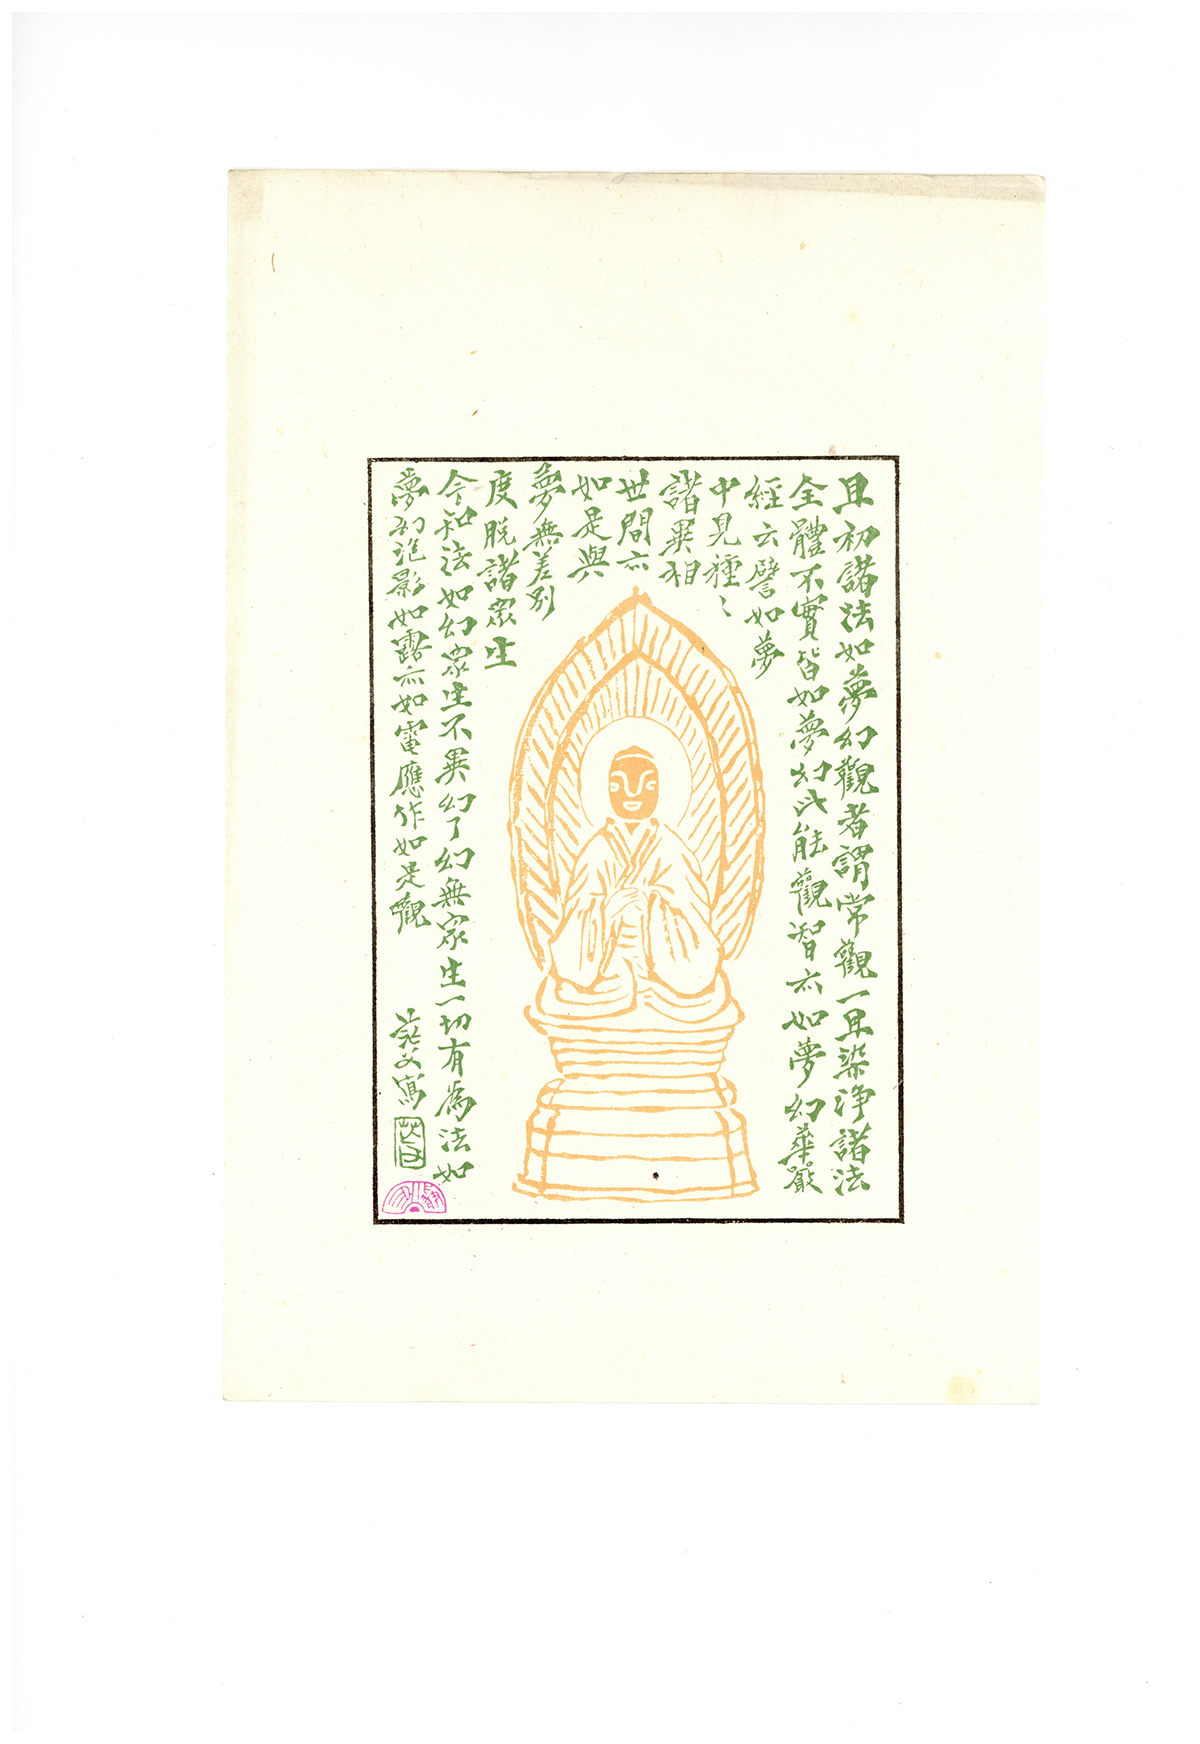 且初諸法如夢幻觀者謂常觀一旦染淨諸法
全體不實皆如夢幻此能觀智亦如夢幻華嚴
經云譬如夢
中見種〻
諸異相
世間亦
如是與
夢無差別
度脫諸眾生
令知法如幻眾生不異幻了幻無眾生一切有為法如
夢幻泡影如露亦如電應作如是觀
茫父寫